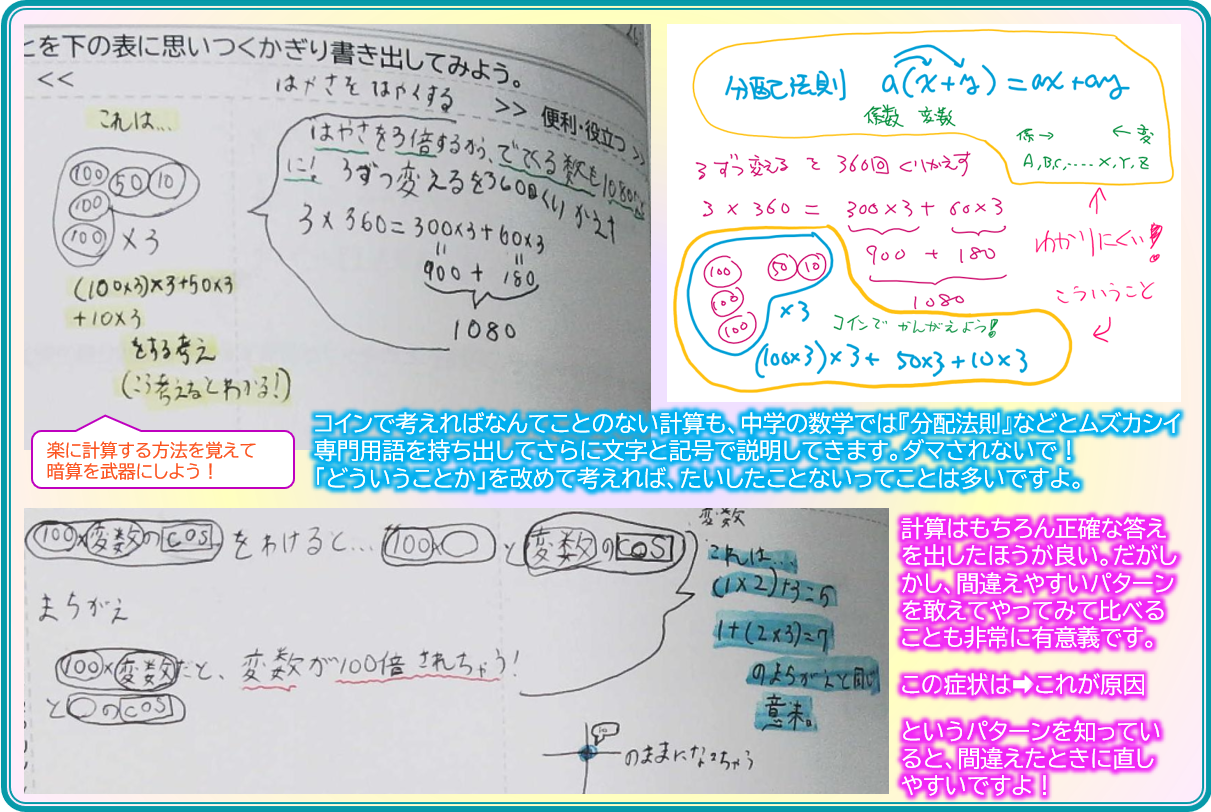 とを下の表に思いつくかぎり書き出してみよう。
<<
はやさを はやくする
>> 便利・役立つ >>
これは...
100 50 10
100
100 ×3
(100×3)×3+50×3
+10×3
をする考え
(こう考えるとわかる!)
はやさを3倍するから、でてくる数も1080
に! 3ずつ変えるを360回くりかえす
3×360=300×3+60×3
900 + 180
1080
分配法則 a(x+y)=ax+ay
係数 変数
係→ ←変
A,B,C,.....X,Y,Z
3ずつ変える を 360回 くりかえす
3 × 360 = 300×3 + 60×3
900 + 180
1080
わかりにくい!
こういうこと
100 50 10
100
100
×3
コインで かんがえよう!
(100×3)×3+ 50×3+10×3
楽に計算する方法を覚えて
暗算を武器にしよう!
コインで考えればなんてことのない計算も、中学の数学では『分配法則』などとムズカシイ
専門用語を持ち出してさらに文字と記号で説明してきます。ダマされないで!
「どういうことか」を改めて考えれば、たいしたことないってことは多いですよ。
100×変数のcos をわけると... 100×○ と 変数のcos
まちがえ
100×変数だと、変数が100倍されちゃう!
と ○のcos
変数
これは...
(1×2)+3=5
1+(2×3)=7
のようがんと同じ
意味。
のままになっちゃう
計算はもちろん正確な答え
を出したほうが良い。だがし
かし、間違えやすいパターン
を敢えてやってみて比べる
ことも非常に有意義です。
この症状は➡これが原因
というパターンを知ってい
ると、間違えたときに直し
やすいですよ!